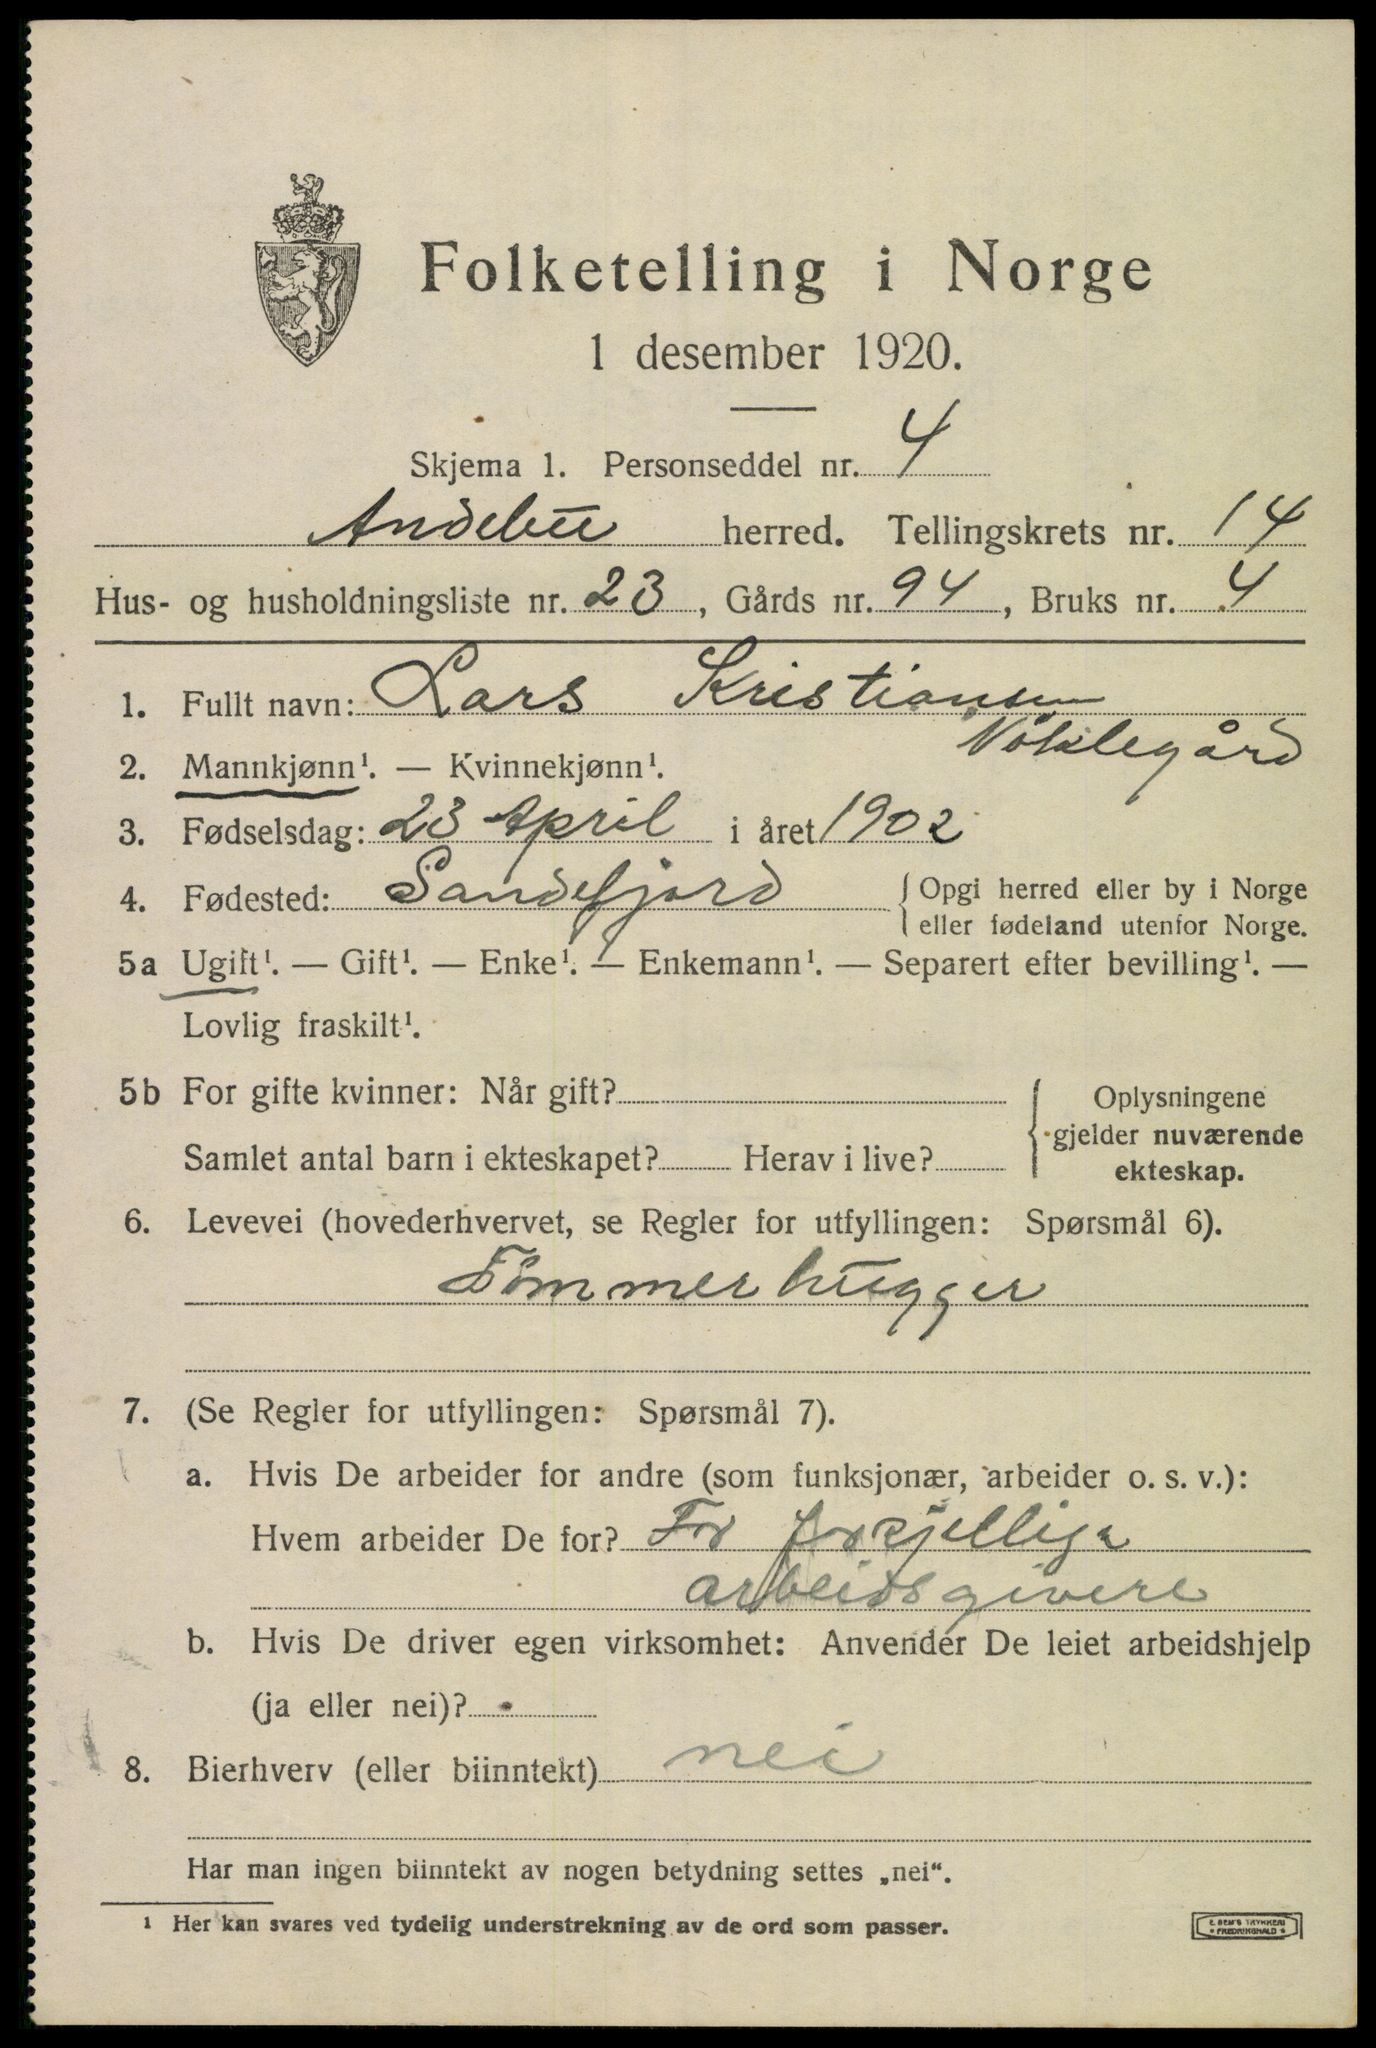 Folketelling i Norge
1 desember 1920.
Skjema 1. Personseddel nr. 4
Andebu herred. Tellingskrets nr. 14
Hus- og husholdningsliste nr. 23, Gårds nr. 94, Bruks nr. 4
1. Fullt navn: Lars Kristiansen
Nöklegård
2. Mannkjønn¹. — Kvinnekjønn¹.
3. Fødselsdag: 23 April i året 1902
4. Fødested: Sandefjord { Opgi herred eller by i Norge
eller fødeland utenfor Norge.
5a Ugift¹. — Gift¹. — Enke¹. — Enkemann¹. — Separert efter bevilling¹. —
Lovlig fraskilt¹.
5b For gifte kvinner: Når gift?
Samlet antal barn i ekteskapet? Herav i live?
Oplysningene
gjelder nuværende
ekteskap.
6. Levevei (hovederhvervet, se Regler for utfyllingen: Spørsmål 6).
Tömmerhugger
7. (Se Regler for utfyllingen: Spørsmål 7).
a. Hvis De arbeider for andre (som funksjonær, arbeider o. s. v.):
Hvem arbeider De for? For forskjellige
arbeidsgivere
b. Hvis De driver egen virksomhet: Anvender De leiet arbeidshjelp
(ja eller nei)?
8. Bierhverv (eller biinntekt) nei
Har man ingen biinntekt av nogen betydning settes „nei“.
¹ Her kan svares ved tydelig understrekning av de ord som passer.
E. SEM'S TRYKKERI
FREDRIKSHALD